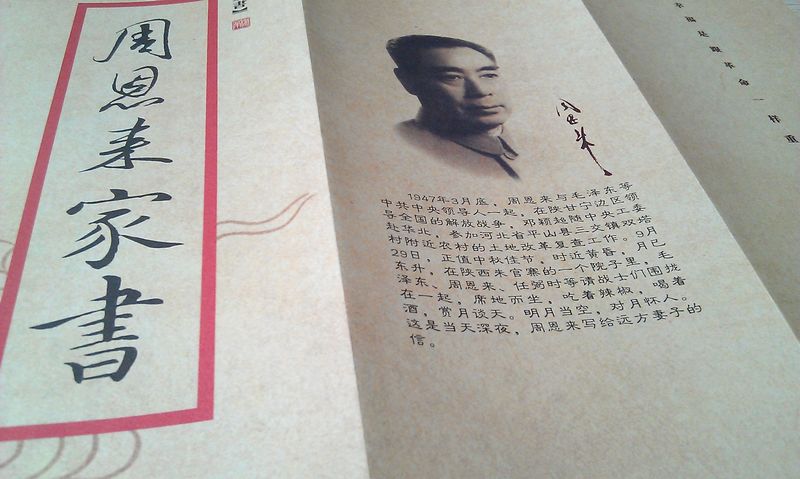 周恩来家書
書】
周恩来
1947年3月底，周恩来与毛泽东等
中共中央领导人一起，在陕甘宁边区领
导全国的解放战争，邓颖超随中央工委
赴华北，参加河北省平山县三交镇双塔
村附近农村的土地改革复查工作。9月
29日，正值中秋佳节，时近黄昏，月已
东升，在陕西朱官寨的一个院子里，毛
泽东、周恩来、任弼时等请战士们围拢
在一起，席地而坐，吃着辣椒，喝着
酒，赏月谈天。明月当空，对月怀人。
这是当天深夜，周恩来写给远方妻子的
信。
福是跟革命一样重